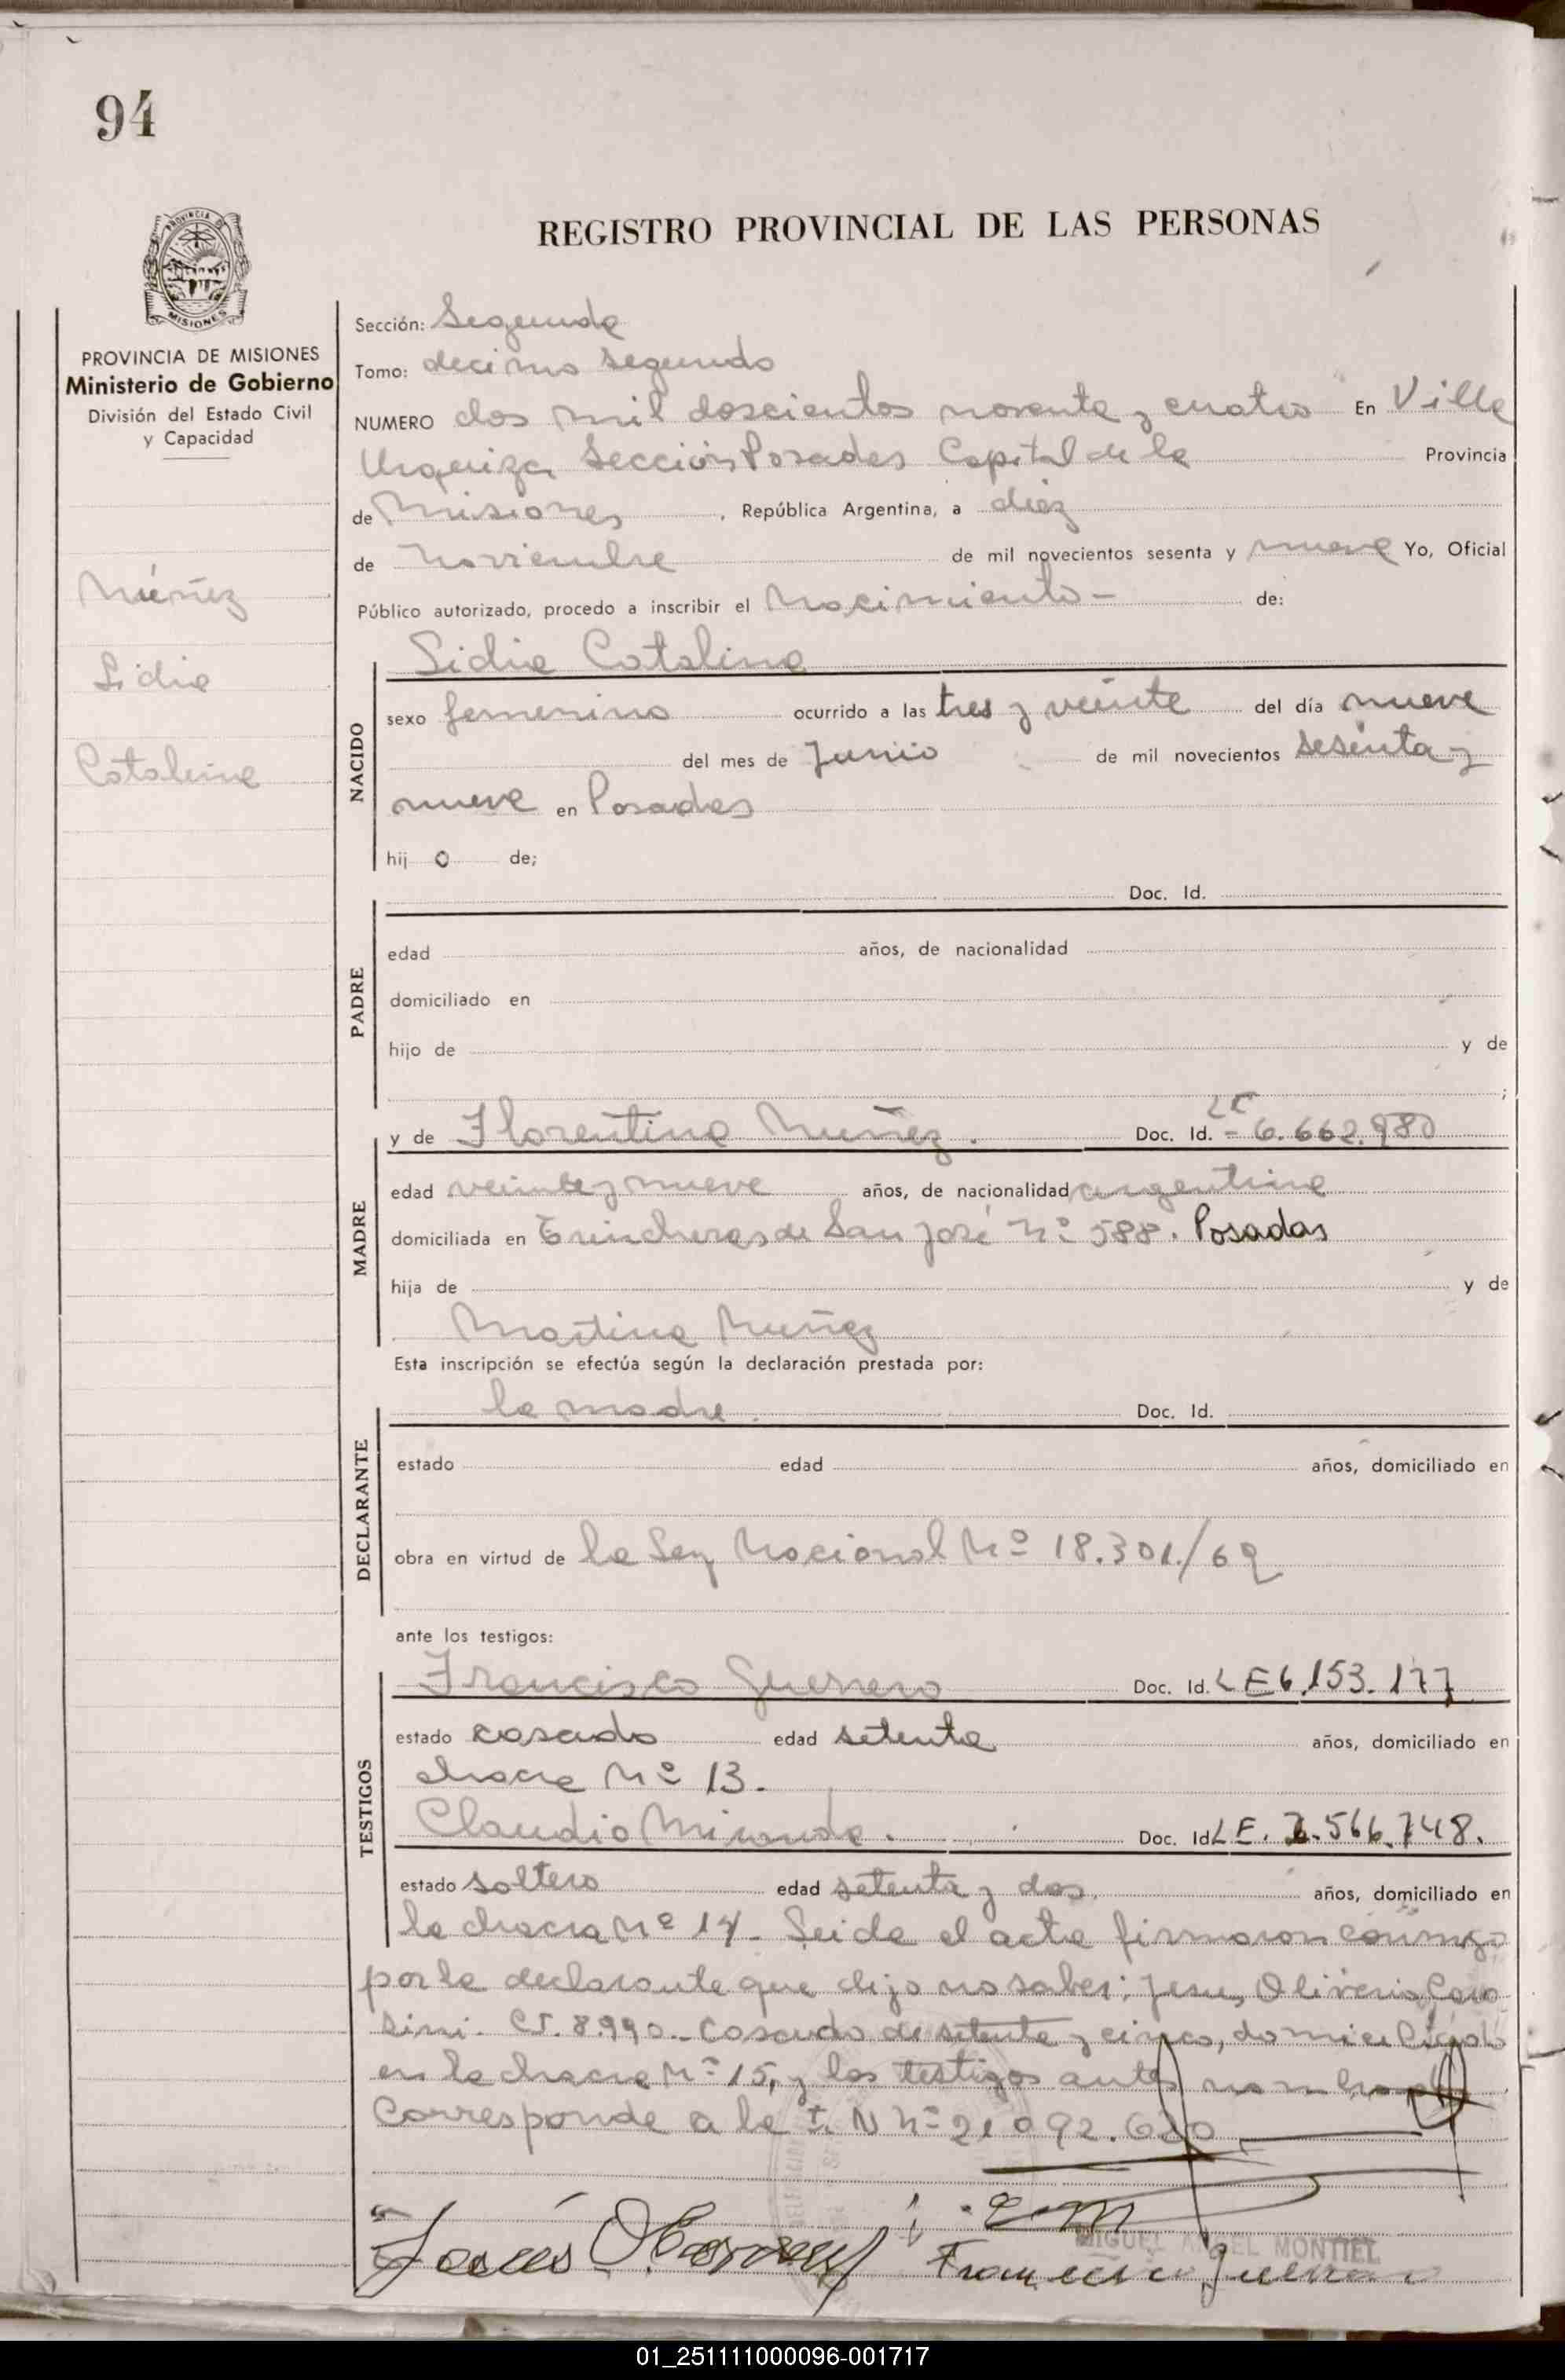 94
REGISTRO PROVINCIAL DE LAS PERSONAS
PROVINCIA DE
MISIONES
PROVINCIA DE MISIONES
Ministerio de Gobierno
División del Estado Civil
y Capacidad
Núñez
Lidia
Catalina
Sección: Segunda
Tomo: decimo segundo
NUMERO dos mil doscientos noventa y cuatro En Villa
Urquiza Sección Posadas Capital de la Provincia
de Misiones, República Argentina, a diez
de Noviembre de mil novecientos sesenta y nueve Yo, Oficial
Público autorizado, procedo a inscribir el Nacimiento - de:
NACIDO
Lidia Catalina
sexo femenino ocurrido a las tres y veinte del día nueve
del mes de Junio de mil novecientos sesenta y
nueve en Posadas
hij o de;
PADRE
Doc. Id.
edad años, de nacionalidad
domiciliado en
hijo de y de
;
MADRE
y de Florentina Nuñez. Doc. Id. LC - 6.662.980
edad veinte y nueve años, de nacionalidad argentina
domiciliada en Trincheras de San José Nº 588. Posadas
hija de y de
Martina Nuñez
Esta inscripción se efectúa según la declaración prestada por:
DECLARANTE
la madre. Doc. Id.
estado edad años, domiciliado en
obra en virtud de la Ley Nacional Nº 18.301./69
ante los testigos:
TESTIGOS
Francisco Guerrero Doc. Id. LE 6.153.177
estado casado edad setenta años, domiciliado en
chacra Nº 13.
Claudio Miranda. Doc. Id LE. 566.748.
estado soltero edad setenta y dos. años, domiciliado en
la chacra Nº 14 - Leida el acta firmaron conmigo
por la declarante que dijo no saber: Jesus Oliverio
CI. 8.990.- Casado de setenta y cinco, domiciliado
en la chacra Nº 15, y los testigos antes nombrados
Corresponde a la I. N Nº 21.092.620
MIGUEL ANGEL MONTIEL
Jesús
Francisco Guerrero
01_251111000096-001717